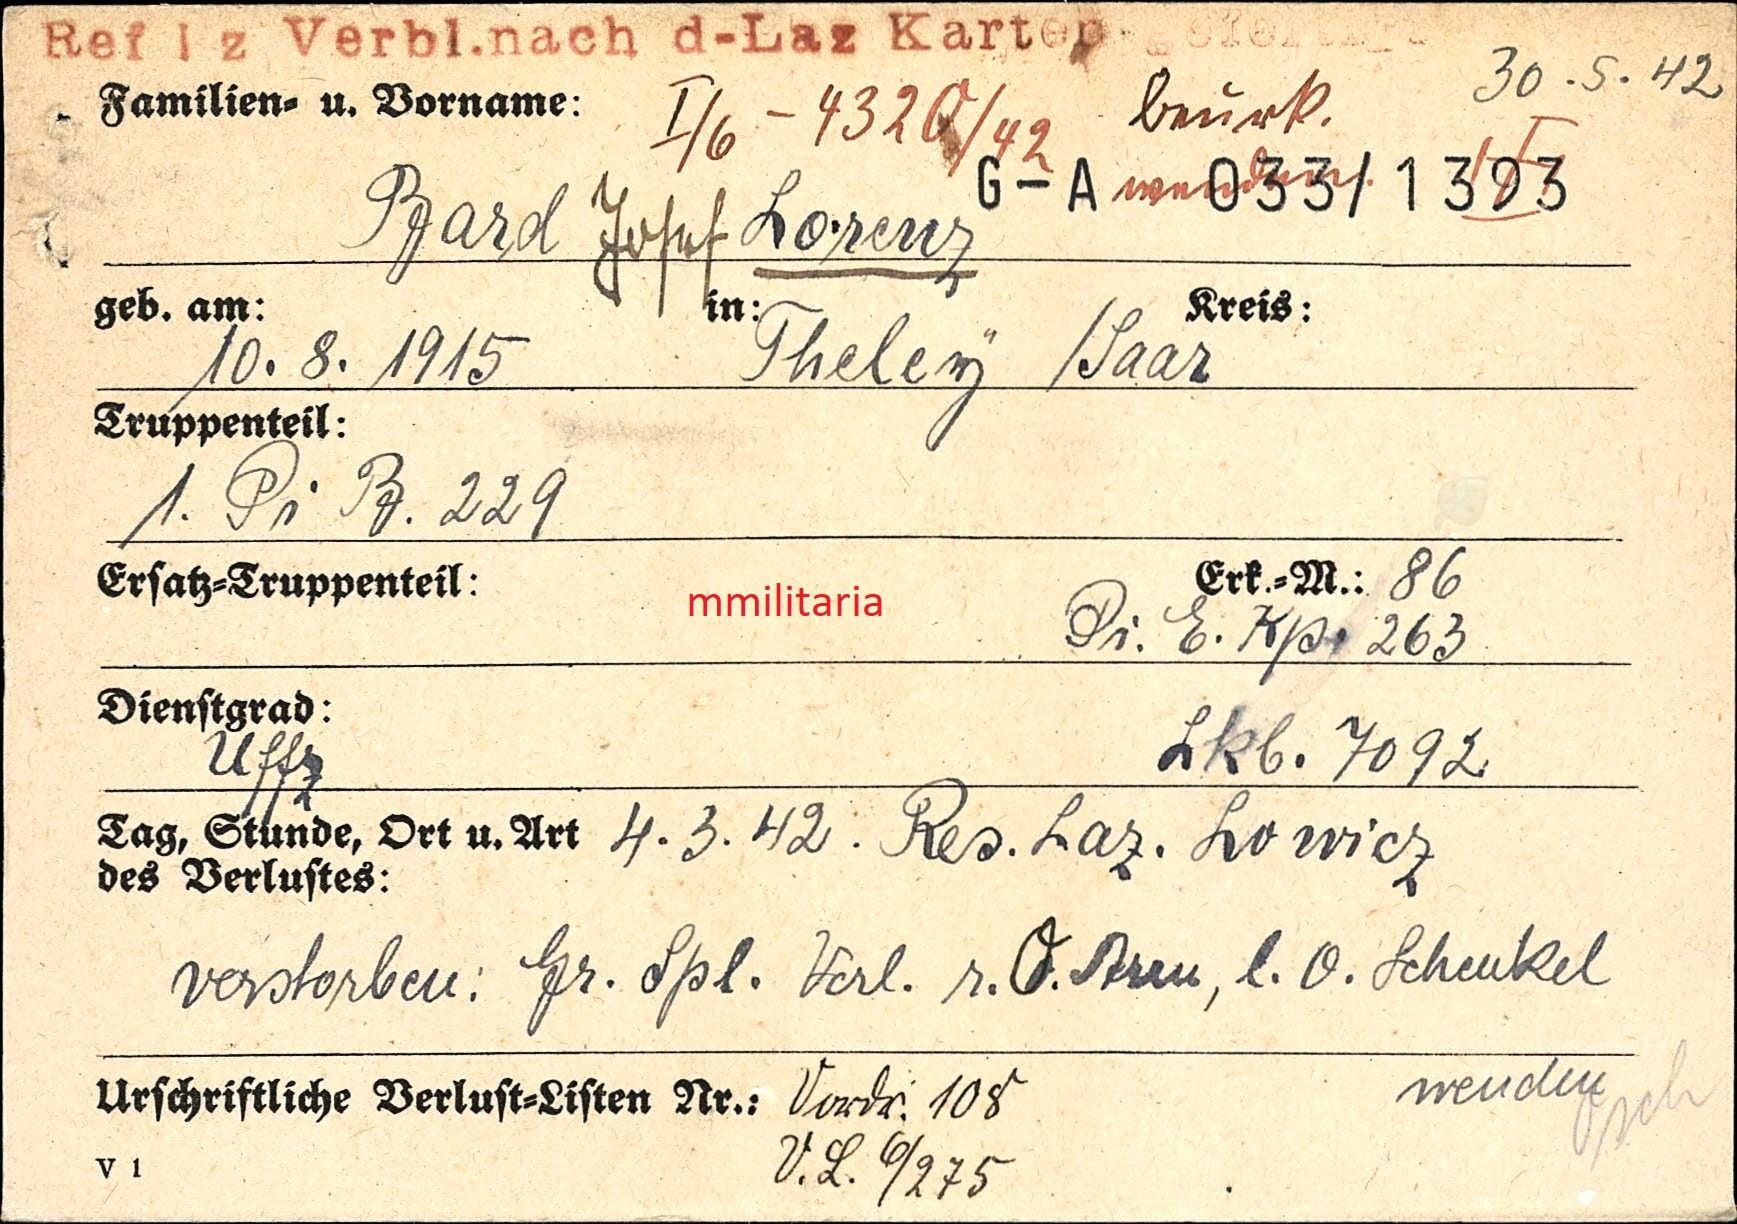 Ref I z Verbl.nach d-Laz Karten
30.5.42
Familien- u. Vorname:
I/6 - 4320/42 beurk.
G-A 033/1393
wenden.
Bard Josef Lorenz
geb. am: in: Kreis:
10.8.1915 Theley /Saar
Truppenteil:
1. Pi B. 229
Ersatz-Truppenteil: Erk.-M.: 86
mmilitaria
Pi. E. Kp. 263
Dienstgrad:
Uffz Lkb. 7092
Tag, Stunde, Ort u. Art 4.3.42. Res. Laz. Lowicz
des Verlustes:
verstorben: Gr. Spl. Verl. r. O. Arm, l. O. Schenkel
Urschriftliche Verlust-Listen Nr.: Vordr. 108 wenden
V 1 V.L. 6/275